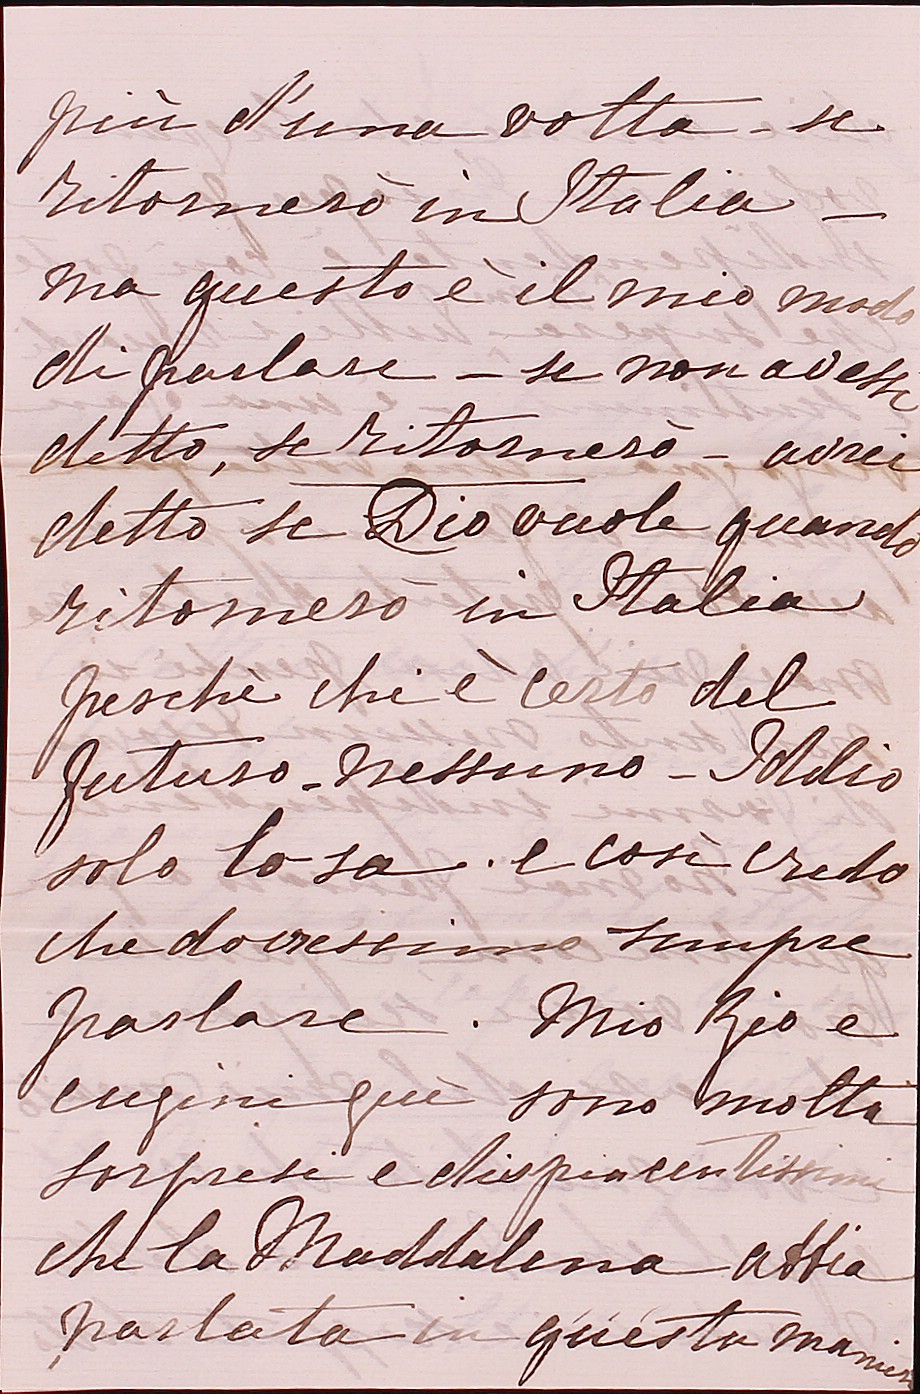 più d'una volta - se
ritornerò in Italia -
ma questo è il mio modo
di parlare - se non avessi
detto, se ritornerò - avrei
detto se Dio vuole quando
ritornerò in Italia
perchè chi è certo del
futuro - nessuno - Iddio
solo lo sa. e così credo
che dovressimo sempre
parlare. Mio Zio e
cugini quì sono molta
sorpresi e dispiacentissimi
che la Maddalena abbia
parlata in questa manier